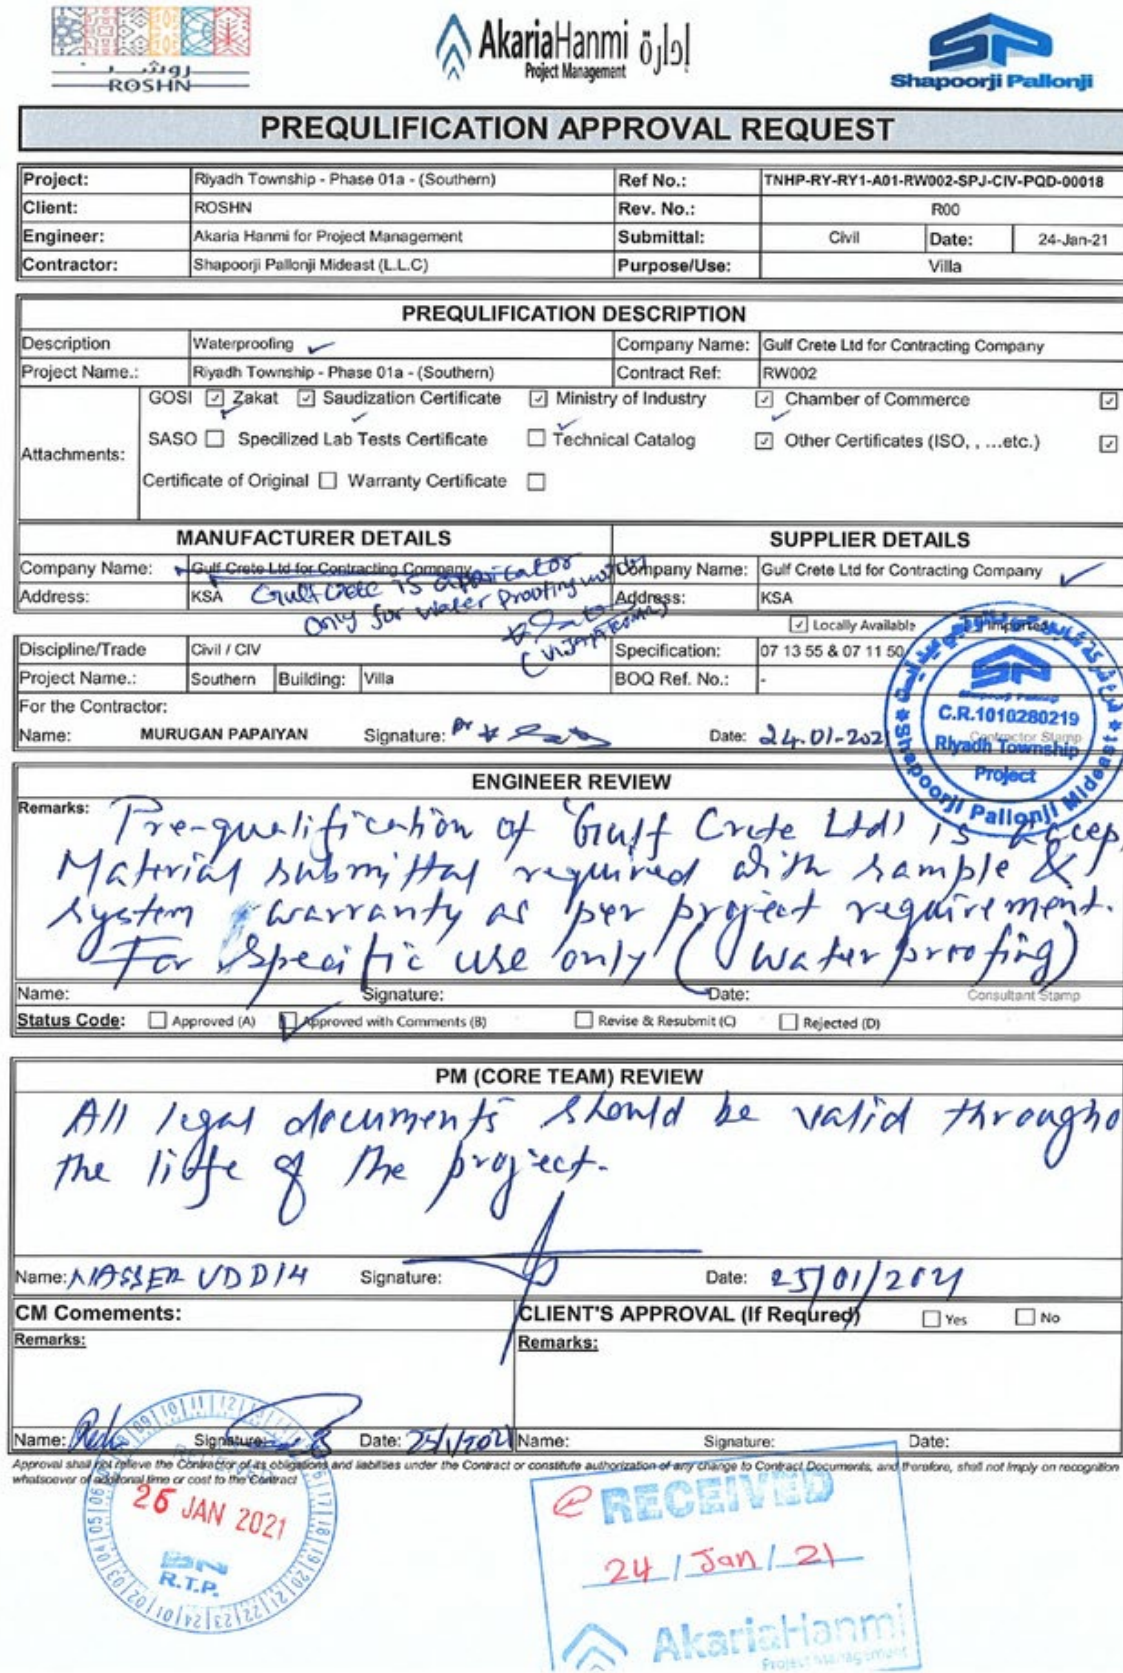 روشن
ROSHN
AkariaHanmi إدارة
Project Management
SP
Shapoorji Pallonji
PREQULIFICATION APPROVAL REQUEST
Project: Riyadh Township - Phase 01a - (Southern) Ref No.: TNHP-RY-RY1-A01-RW002-SPJ-CIV-PQD-00018
Client: ROSHN Rev. No.: R00
Engineer: Akaria Hanmi for Project Management Submittal: Civil Date: 24-Jan-21
Contractor: Shapoorji Pallonji Mideast (L.L.C) Purpose/Use: Villa
PREQULIFICATION DESCRIPTION
Description Waterproofing Company Name: Gulf Crete Ltd for Contracting Company
Project Name.: Riyadh Township - Phase 01a - (Southern) Contract Ref: RW002
Attachments:
GOSI Zakat Saudization Certificate Ministry of Industry Chamber of Commerce
SASO Specilized Lab Tests Certificate Technical Catalog Other Certificates (ISO, , ...etc.)
Certificate of Original Warranty Certificate
MANUFACTURER DETAILS SUPPLIER DETAILS
Company Name: Gulf Crete Ltd for Contracting Company Company Name: Gulf Crete Ltd for Contracting Company
Address: KSA Address: KSA
Gulf Crete is applicator
only for water Proofing
(VIJAYA KUMAR)
Locally Available Imported
Discipline/Trade Civil / CIV Specification: 07 13 55 & 07 11 50
Project Name.: Southern Building: Villa BOQ Ref. No.: -
For the Contractor:
Name: MURUGAN PAPAIYAN Signature: Date: 24-01-202
Contractor Stamp
C.R.1010280219
Riyadh Township
Project
Shapoorji Pallonji Mideast
ENGINEER REVIEW
Remarks: Pre-qualification of 'Gulf Crete Ltd) is accep
Material submittal required with sample &
system warranty as per project requirement.
For specific use only (Water proofing)
Name: Signature: Date: Consultant Stamp
Status Code: Approved (A) Approved with Comments (B) Revise & Resubmit (C) Rejected (D)
PM (CORE TEAM) REVIEW
All legal documents should be valid througho
the life of the project.
Name: NASSER UDDIN Signature: Date: 25/01/2021
CM Comements: CLIENT'S APPROVAL (If Requred) Yes No
Remarks: Remarks:
Name: Signature: Date: 25/1/2021 Name: Signature: Date:
Approval shall not relieve the Contractor of its obligations and liabilities under the Contract or constitute authorization of any change to Contract Documents, and therefore, shall not imply on recognition
whatsoever of additonal time or cost to the Contract
26 JAN 2021
R.T.P.
RECEIVED
24 / Jan / 21
AkariaHanmi
Project Management